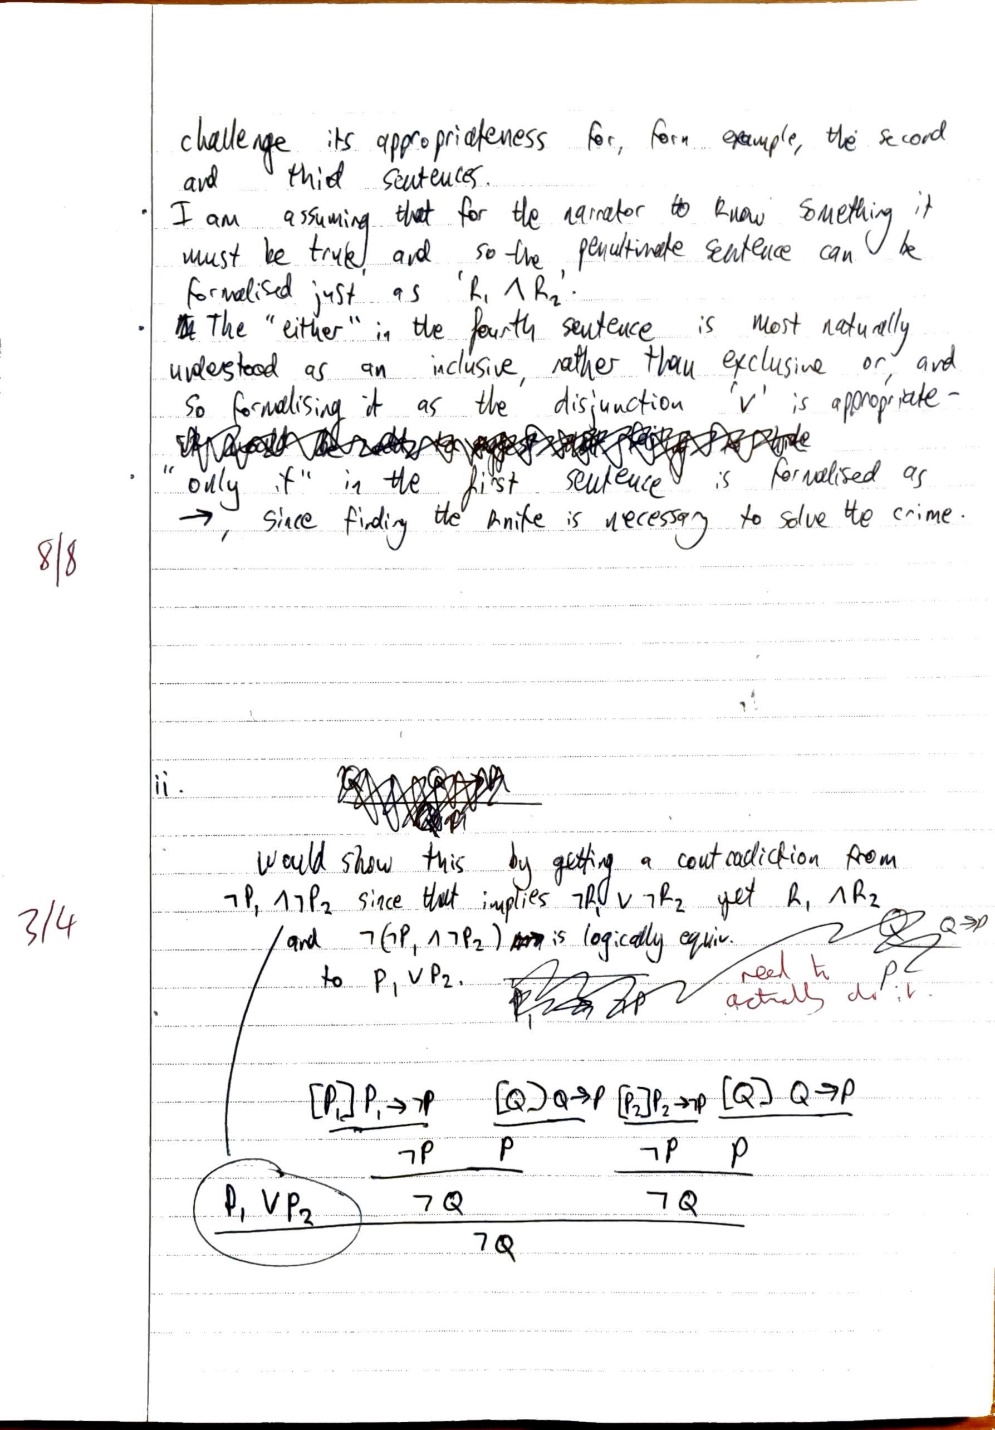 challenge its appropriateness for, form example, the second
and third sentences.
· I am assuming that for the narrator to know something it
must be true, and so the penultimate sentence can be
formalised just as 'R₁ ∧ R₂'.
· The "either" in the fourth sentence is most naturally
understood as an inclusive, rather than exclusive or, and
so formalising it as the disjunction 'v' is appropriate -
· "only if" in the first sentence is formalised as
→, since finding the knife is necessary to solve the crime.
8/8
ii.
would show this by getting a contradiction from
¬P₁ ∧ ¬P₂ since that implies ¬R₁ ∨ ¬R₂ yet R₁ ∧ R₂
3/4
and ¬(¬P₁ ∧ ¬P₂) is logically equiv.
to P₁ ∨ P₂.
need to
actually do it.
[P₁] P₁→¬P [Q] Q→P [P₂] P₂→¬P [Q] Q→P
¬P P ¬P P
P₁ ∨ P₂ ¬Q ¬Q
¬Q